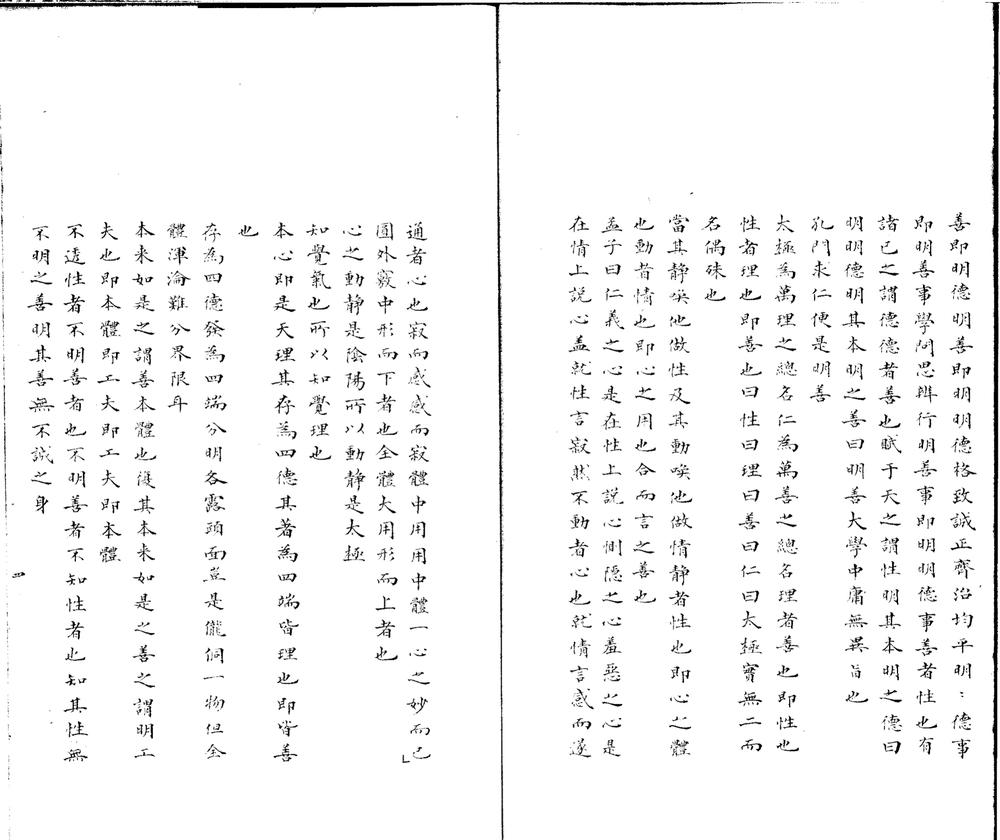 善即明德明善即明明德格致誠正齊治均平明〻德事
即明善事學問思辨行明善事即明明德事善者性也有
諸已之謂德德者善也賦于天之謂性明其本明之德曰
明明德明其本明之善曰明善大學中庸無異旨也
孔門求仁便是明善
太極為萬理之總名仁為萬善之總名理者善也即性也
性者理也即善也曰性曰理曰善曰仁曰太極實無二而
名偶殊也
當其静喚他做性及其動喚他做情静者性也即心之體
也動者情也即心之用也合而言之善也
孟子曰仁義之心是在性上説心惻隱之心羞惡之心是
在情上説心盖就性言寂然不動者心也就情言感而遂
通者心也寂而感感而寂體中用用中體一心之妙而已」
圓外竅中形而下者也全體大用形而上者也
心之動静是陰陽所以動静是太極
知覺氣也所以知覺理也
本心即是天理其存為四德其著為四端皆理也即皆善
也
存為四德發為四端分明各露頭面豈是儱侗一物但全
體渾淪難分界限耳
本来如是之謂善本體也復其本来如是之善之謂明工
夫也即本體即工夫即工夫即本體
不透性者不明善者也不明善者不知性者也知其性無
不明之善明其善無不誠之身
四